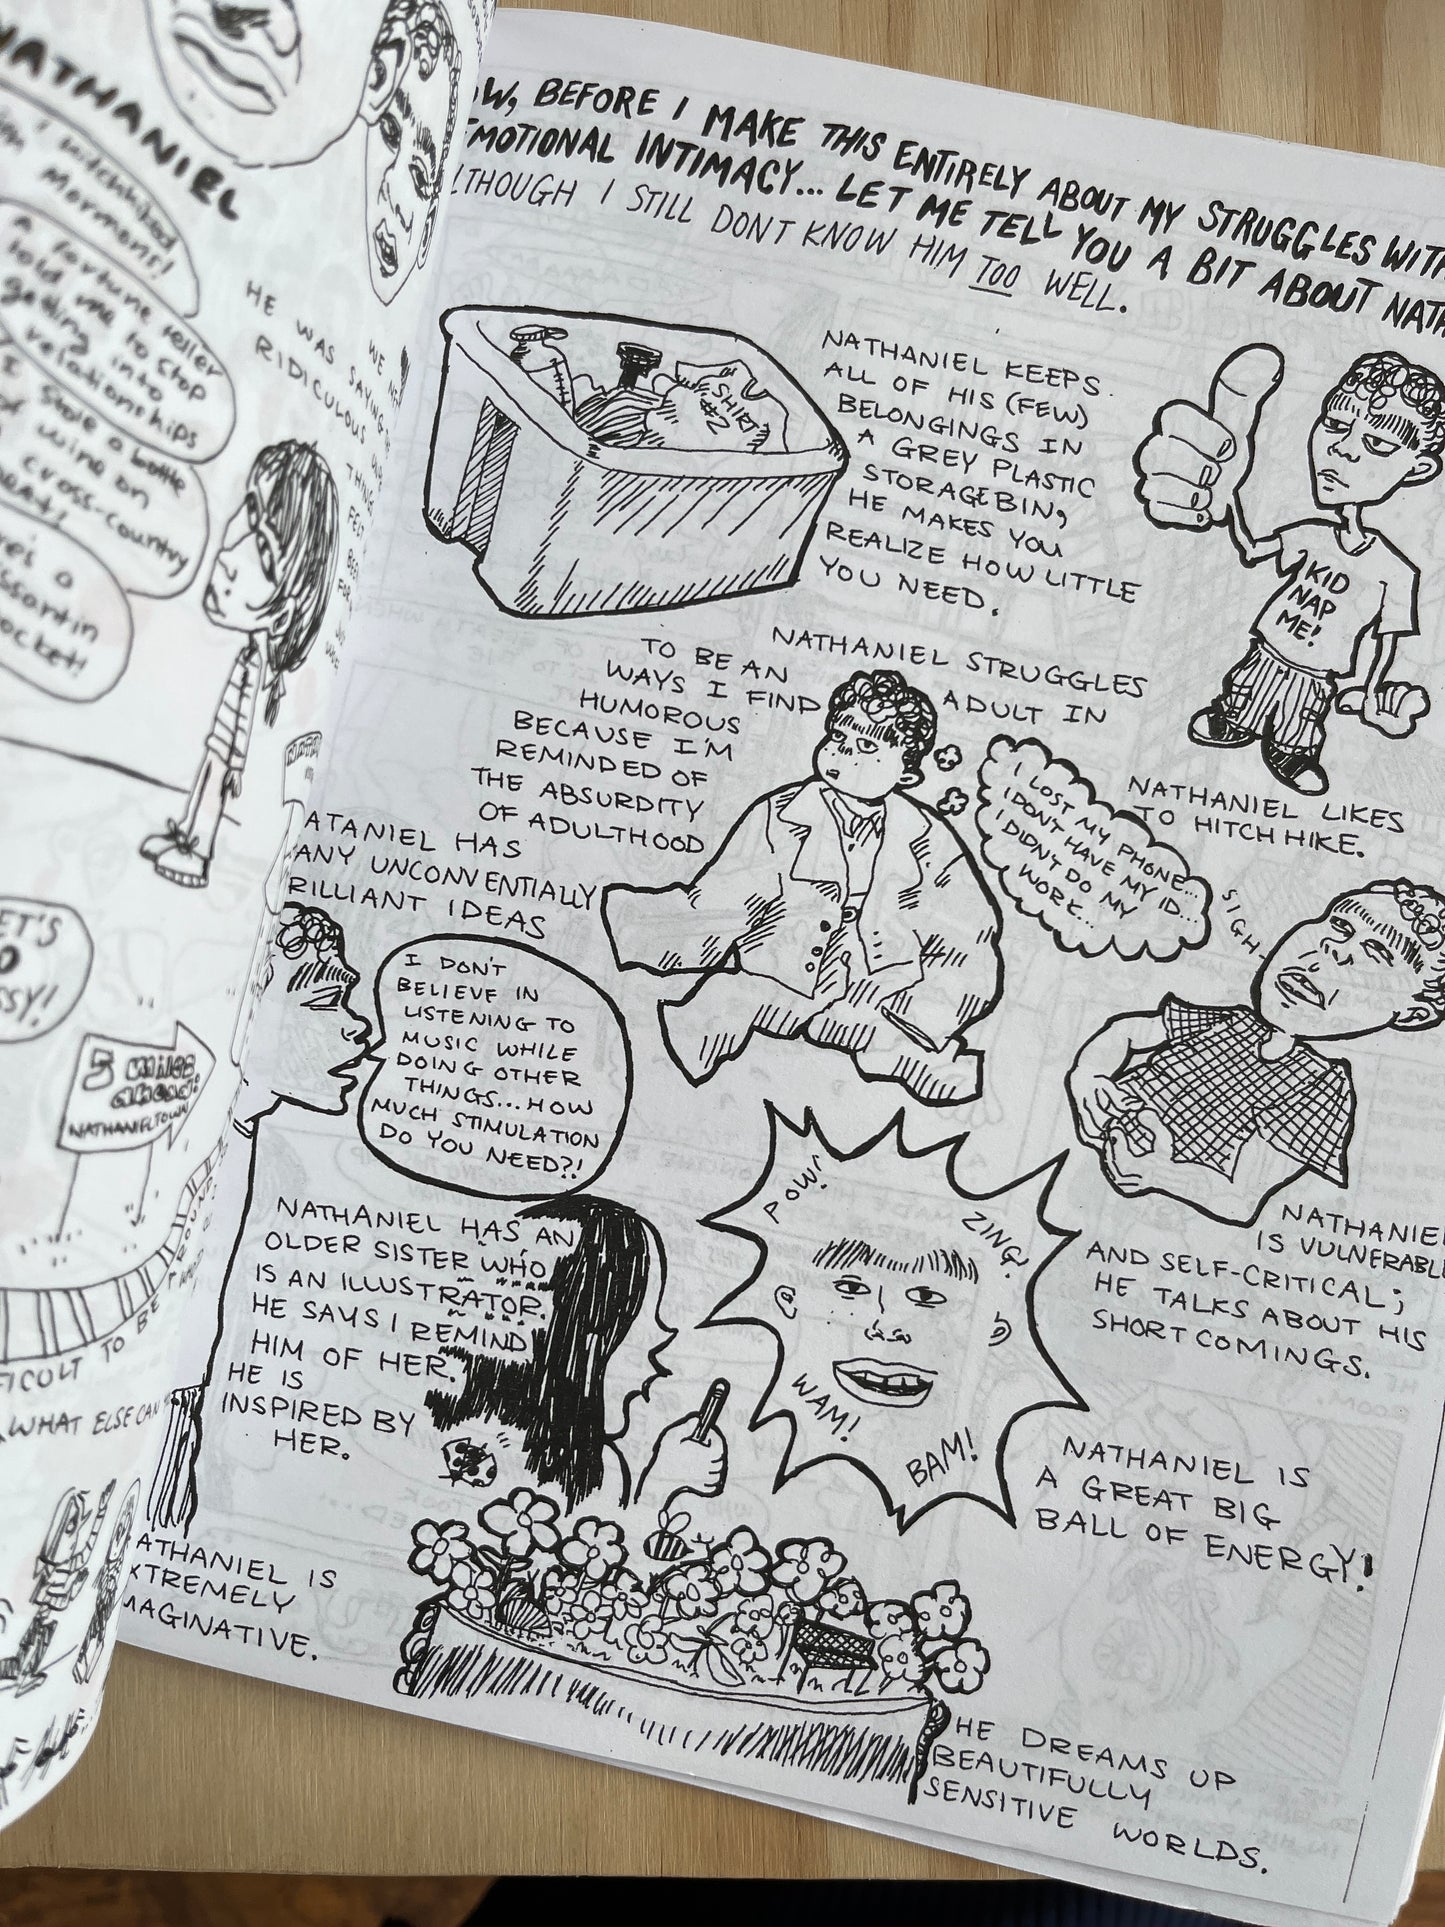 NATHANIEL
I hitchhiked
Mormons!
A fortune teller
told me to stop
getting into
relationships
I stole a bottle
of wine on
cross-country
HE WAS SAYING
RIDICULOUS THINGS
WE
5 MILES
AHEAD!
NATHANIELTOWN
ROUND
TO BE
WHAT ELSE CAN
BEFORE I MAKE THIS ENTIRELY ABOUT MY STRUGGLES WITH
EMOTIONAL INTIMACY... LET ME TELL YOU A BIT ABOUT
I STILL DONT KNOW HIM TOO WELL.
SHIRT
#2
NATHANIEL KEEPS
ALL OF HIS (FEW)
BELONGINGS IN
A GREY PLASTIC
STORAGE BIN,
HE MAKES YOU
REALIZE HOW LITTLE
YOU NEED.
KID
NAP
ME!
NATHANIEL LIKES
TO HITCH HIKE.
NATHANIEL STRUGGLES
TO BE AN ADULT IN
WAYS I FIND
HUMOROUS
BECAUSE I'M
REMINDED OF
THE ABSURDITY
OF ADULTHOOD
I LOST MY PHONE...
I DON'T HAVE MY ID...
I DIDN'T DO MY
WORK...
SIGH
HAS
UNCONVENTIALLY
IDEAS
I DON'T
BELIEVE IN
LISTENING TO
MUSIC WHILE
DOING OTHER
THINGS... HOW
MUCH STIMULATION
DO YOU NEED?!
NATHANIEL
IS VULNERABLE
AND SELF-CRITICAL;
HE TALKS ABOUT HIS
SHORT COMINGS.
NATHANIEL HAS AN
OLDER SISTER WHO
IS AN ILLUSTRATOR.
HE SAYS I REMIND
HIM OF HER.
HE IS
INSPIRED BY
HER.
POW!
ZING!
WAM!
BAM!
NATHANIEL IS
A GREAT BIG
BALL OF ENERGY!
IS
HE DREAMS UP
BEAUTIFULLY
SENSITIVE WORLDS.